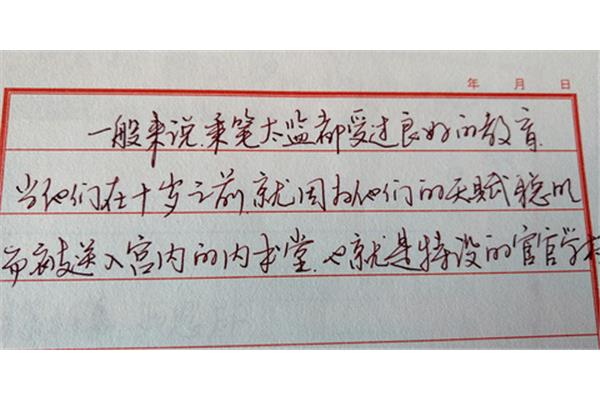 年 月 日
一般来说,秉笔太监都受过良好的教育.
当他们在十岁之前,就因为他们的天赋聪明
而被送入宫内的内书堂.也就是特设的宦官学校